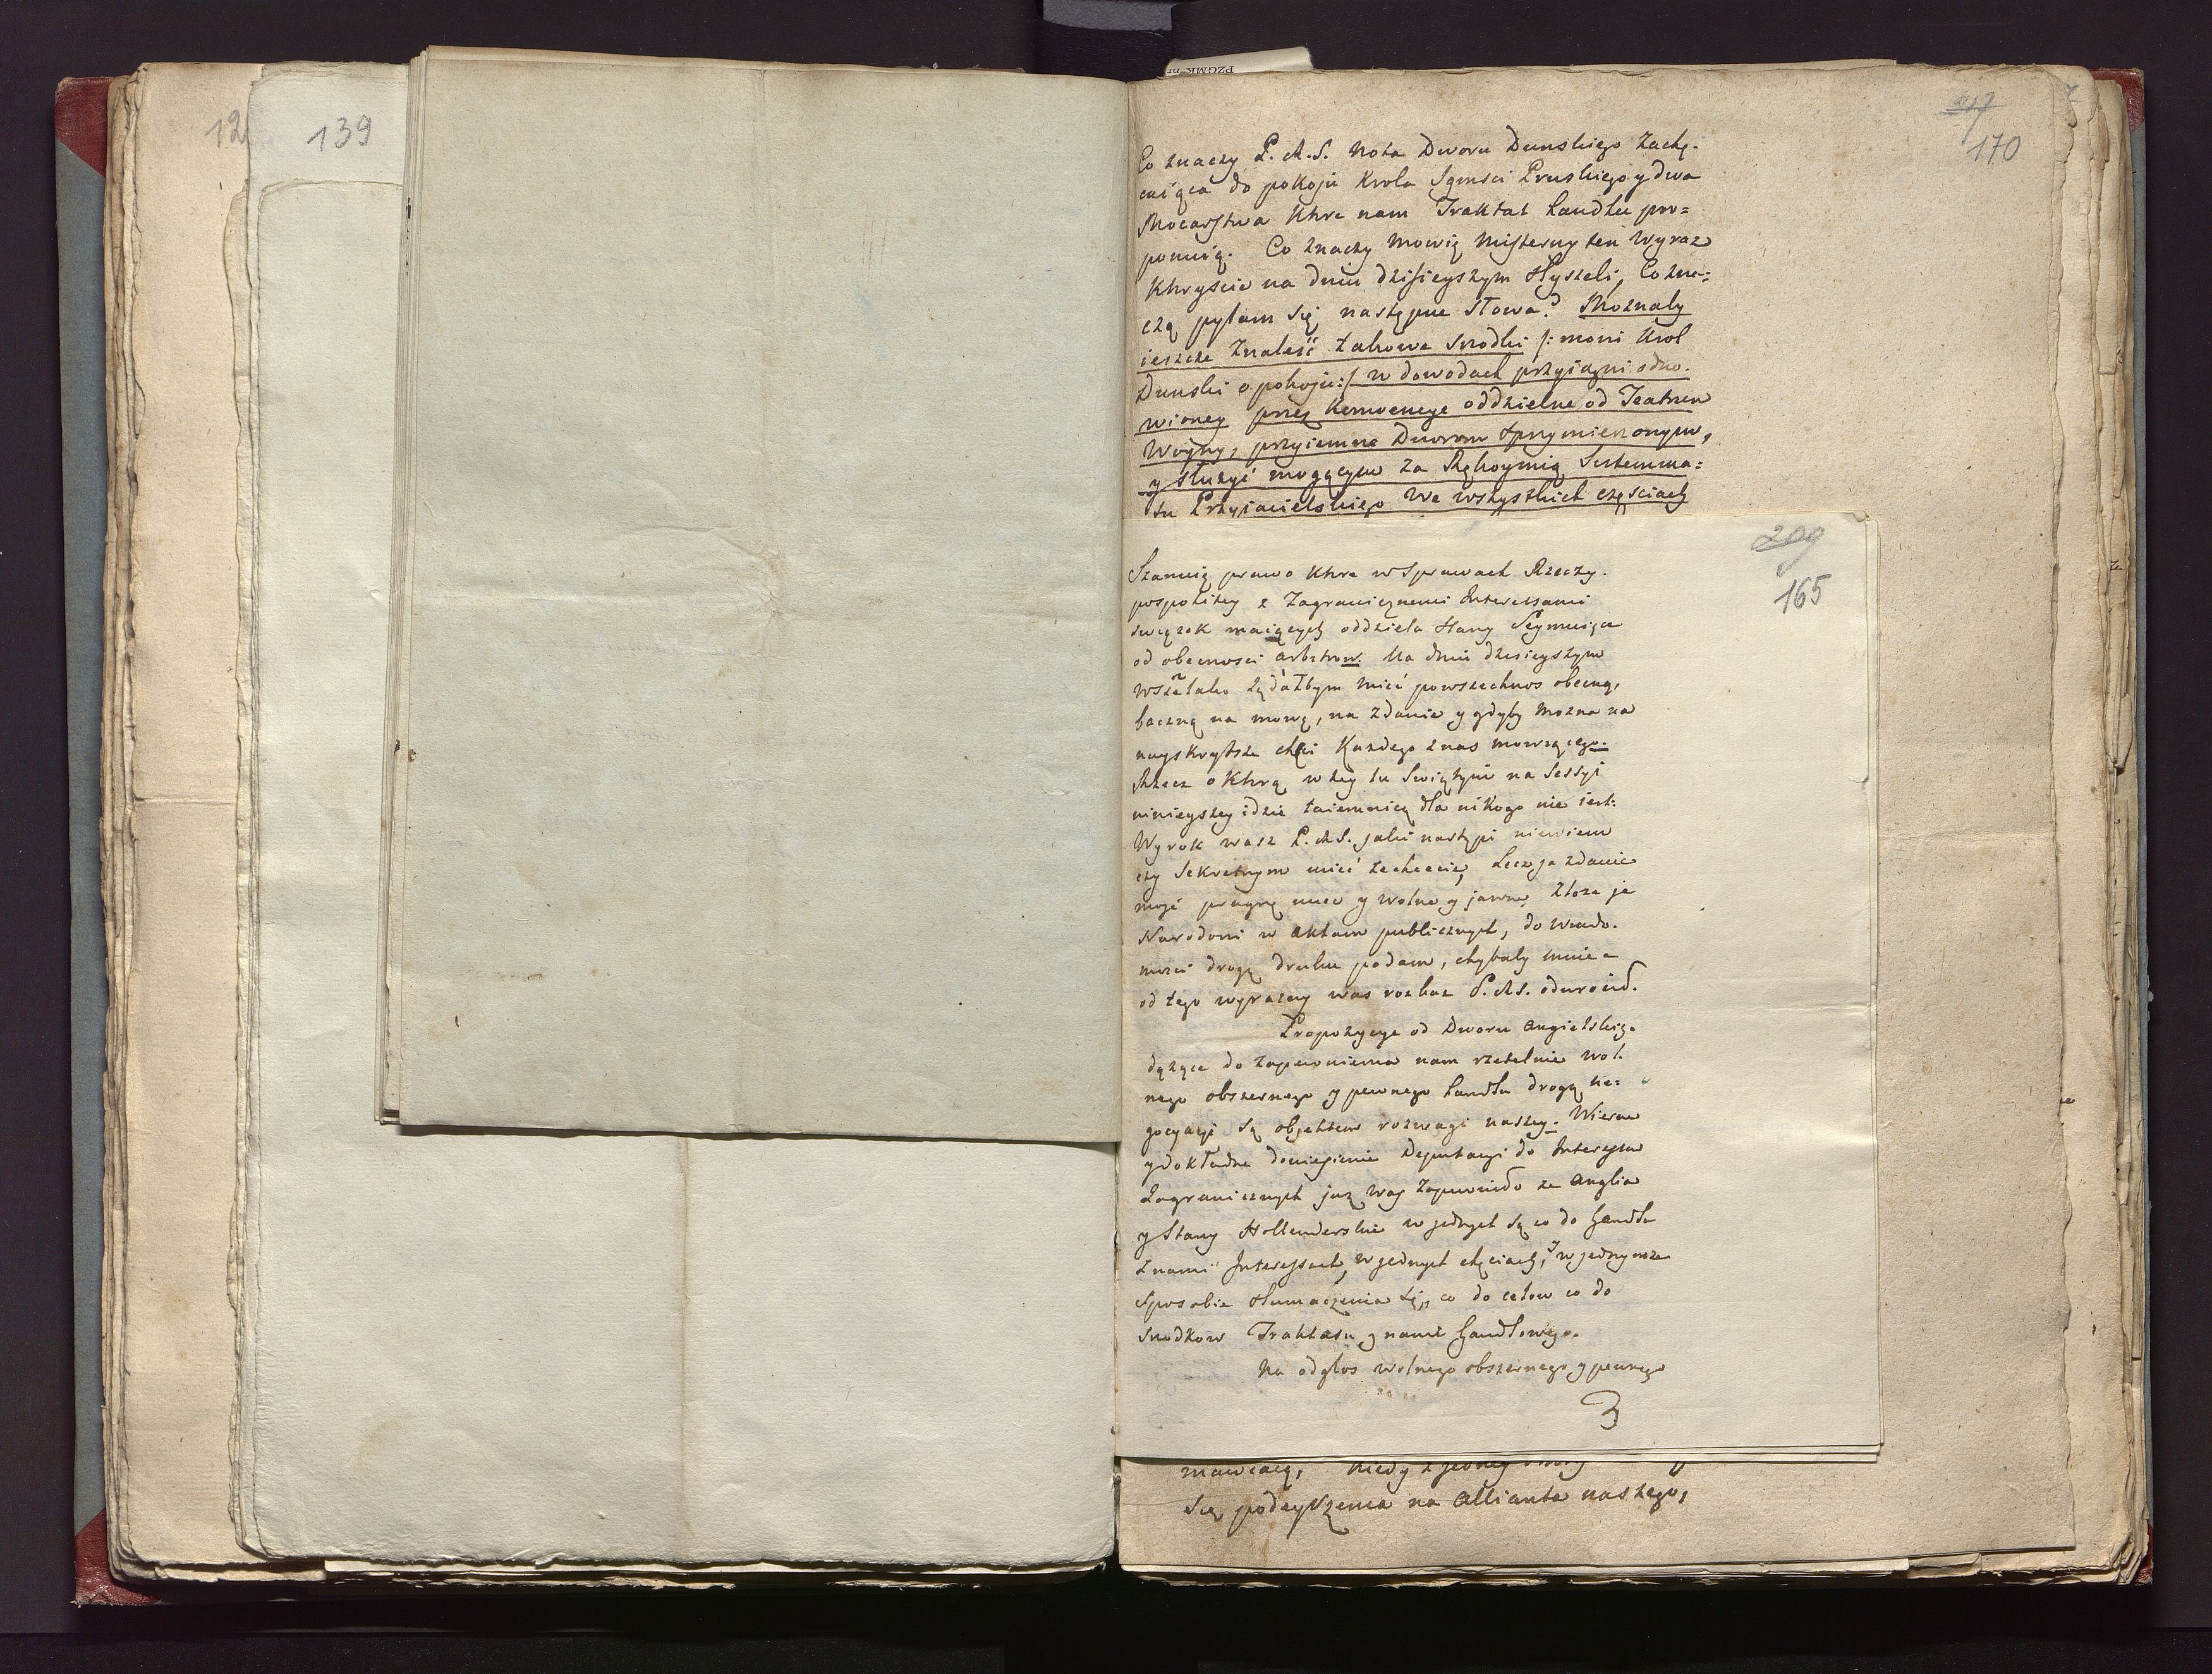 12
139
PZGMK nr
170
Co znaczy P. M. S. Nota Dworu Dunskiego zachę-
caiąca do pokoju Krola Jgmsci Pruskiego y dwa
Mocarstwa Ktore nam Traktat handlu pro=
ponuią. Co znaczy mowię misterny ten wyraz
Ktryscie na dniu dzisieyszym słyszeli, Co zna=
czą pytam się następne słowa? Moznaby
ieszcze znaleść takowe srodki /: mowi Krol
Dunski o pokoju :/ w dowodach przyiazni odno-
wioney przez Konwencye oddzielne od Teatrum
Woyny, przyiemne Dworom sprzymierzonym,
y służyć mogącym za Rękoymią Sistemma=
tu Przyiacielskiego we wszystkich częsciach
209
165
Szanuię prawo Ktore w sprawach Rzeczy-
pospolitey z Zagranicznemi Interessami
związek maiących oddziela Stany Seymuiące
od obecnosci arbitrow. Na dniu dzisieyszym
wszelako żądałbym mieć powszechnos obecną,
baczną na mowę, na zdanie y gdyby można na
nayskrytsze chęci Każdego z nas mowiącego.
Rzecz o Ktorą w tey tu Swiątyni na Sessyi
ninieyszey idzie taiemnicą dla nikogo nie iest:
Wyrok wasz P. M. S. jaki nastąpi niewiem
czy sekretnym mieć zechcecie, Lecz ja zdanie
moje pragnę miec y wolne y jawne, złoże je
Narodowi w aktach publicznych, do wiado-
mosci drogą druku podam, chybaby mnie
od tego wyrazny was rozkaz P. M. S. odwrocił.
Propozycye od Dworu Angielskieg.
dążące do zapewnienia nam rzetelnie wol-
nego obszernego y pewnego handlu drogą ne=
gocyacyi są objektem rozwagi naszey. Wierne
y dokładne doniesienie Deputacyi do Interessow
Zagranicznych już was zapewniło że Anglia
y Stany Hollenderskie w jednych są co do handlu
z nami Interessach, w jednych chęciach, y w jednymże
sposobie tłumaczenia się, co do celow co do
srodkow Traktatu z nami handlowego.
Na odgłos wolnego obszernego y pewnego
3
mawiaią, Kiedy z jedney strony
się podeyrzenia na Allianta naszego,